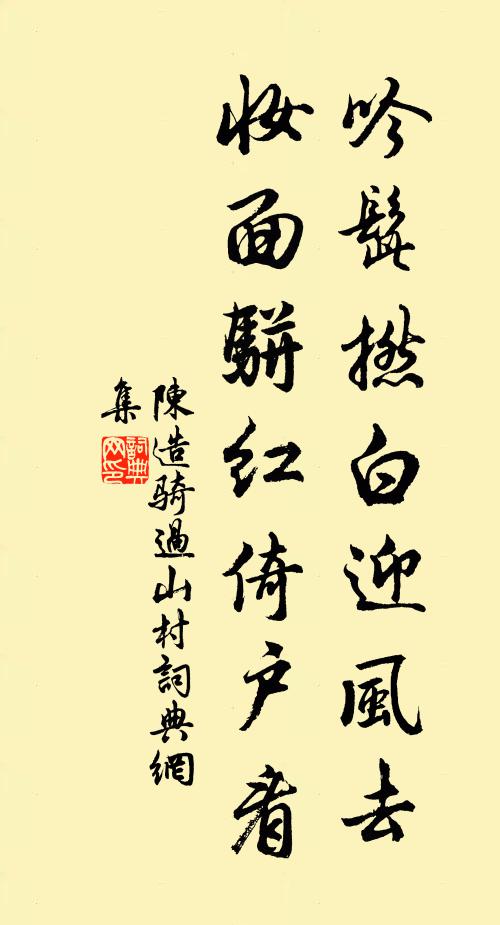 吟髭撚白迎風去
妝面駢紅倚户看
陳造騎過山村詞典網
集
詞典
网印